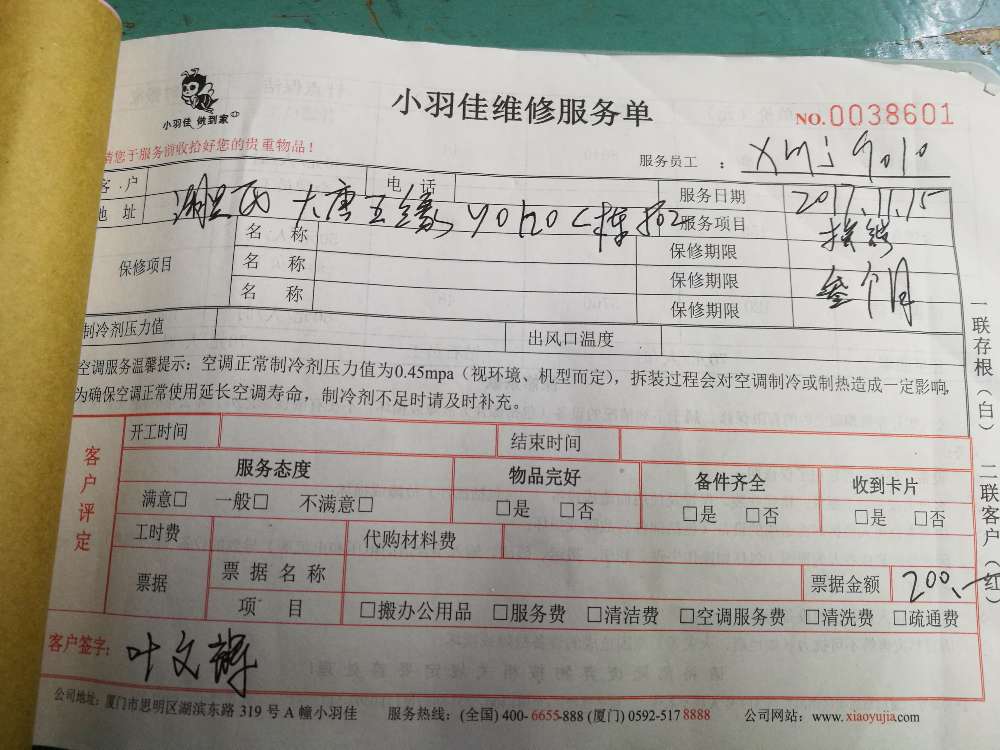 小羽佳维修服务单
小羽佳 做到家
NO.0038601
请您于服务前收拾好您的贵重物品！
服务员工 ： xmj9010
客 户 电 话 服务日期 2017.11.15
地 址 大唐五缘 yoho C栋 服务项目
保修项目 名 称 保修期限
名 称 保修期限 叁个月
名 称 保修期限
制冷剂压力值 出风口温度
空调服务温馨提示：空调正常制冷剂压力值为0.45mpa（视环境、机型而定），拆装过程会对空调制冷或制热造成一定影响，
为确保空调正常使用延长空调寿命，制冷剂不足时请及时补充。
客户评定
开工时间 结束时间
服务态度 物品完好 备件齐全 收到卡片
满意□ 一般□ 不满意□ □是 □否 □是 □否 □是 □否
工时费 代购材料费
票据 票据名称 票据金额 200.-
项 目 □搬办公用品 □服务费 □清洁费 □空调服务费 □清洗费 □疏通费
客户签字： 叶文辉
公司地址：厦门市思明区湖滨东路 319 号 A 幢小羽佳 服务热线：(全国) 400-6655-888 (厦门) 0592-517 8888 公司网站：www.xiaoyujia.com
一联存根（白） 二联客户（红）